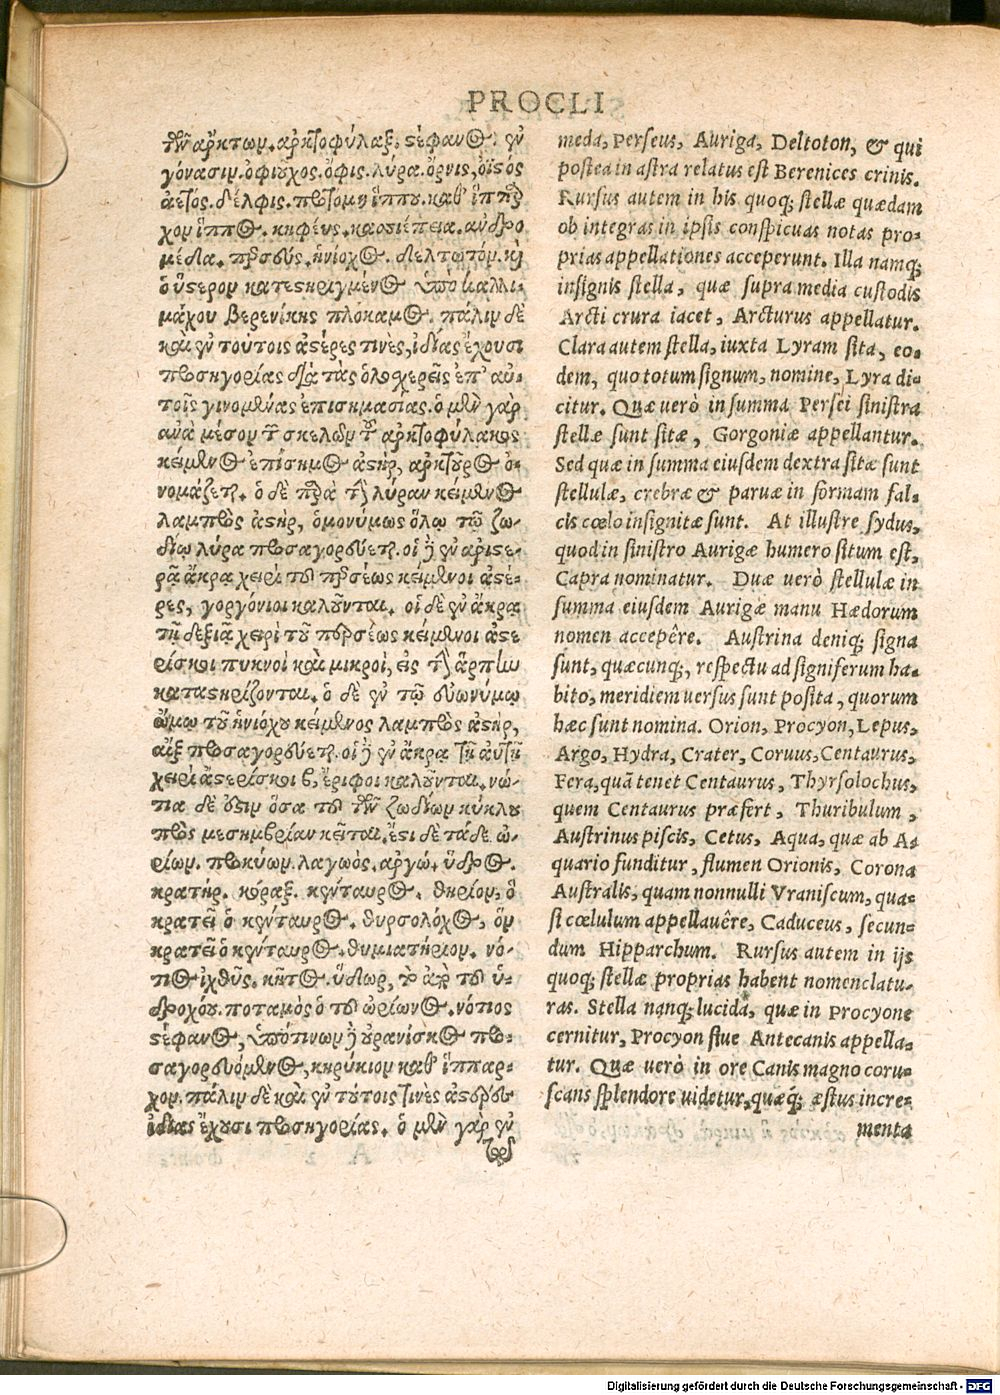 PROCLI
τῶν ἄρκτων. ἀρκτοφύλαξ. στέφανος. ἐν
γόνασιν. ὀφιοῦχος. ὄφις. λύρα. ὄρνις. ὀϊστός
ἀετός. δέλφις. προτομὴ ἵππου. καθ' ἵππαρ
χον ἵππος. κηφεύς. κασσιέπεια. ἀνδρο
μέδα. περσεύς. ἡνίοχος. δελτωτόν. καὶ
ὁ ὕστερον κατεστηριγμένος ὑπὸ καλλι-
μάχου βερενίκης πλόκαμος. πάλιν δὲ
καὶ ἐν τούτοις ἀστέρες τινὲς, ἰδίας ἔχουσι
προσηγορίας διὰ τὰς ὁλοχερεῖς ἐπ' αὐ-
τοῖς γινομένας ἐπισημασίας. ὁ μὲν γὰρ
ἀνὰ μέσον τῶν σκελῶν τοῦ ἀρκτοφύλακος
κείμενος ἐπίσημος ἀστὴρ, ἀρκτοῦρος ὀ-
νομάζεται. ὁ δὲ παρὰ τὴν λύραν κείμενος
λαμπρὸς ἀστὴρ, ὁμονύμως ὅλῳ τῷ ζω-
δίῳ λύρα προσαγορεύεται. οἱ δὲ ἐν ἀριστε-
ρᾷ ἄκρᾳ χειρὶ τοῦ περσέως κείμενοι ἀστέ-
ρες, γοργόνιοι καλοῦνται. οἱ δὲ ἐν ἄκρᾳ
τῇ δεξιᾷ χειρὶ τοῦ περσέως κείμενοι ἀστε
ρίσκοι πυκνοὶ καὶ μικροὶ, εἰς τὴν ἅρπην
καταστηρίζονται. ὁ δὲ ἐν τῷ εὐωνύμῳ
ὤμῳ τοῦ ἡνιόχου κείμενος λαμπρὸς ἀστὴρ,
αἲξ προσαγορεύεται. οἱ δὲ ἐν ἄκρᾳ τῇ αὐτῇ
χειρὶ ἀστερίσκοι β, ἔριφοι καλοῦνται. νό-
τια δὲ ἐστιν ὅσα τοῦ τῶν ζωδίων κύκλου
πρὸς μεσημβρίαν κεῖται. ἔστι δὲ τάδε. ὠ-
ρίων. προκύων. λαγωὸς. ἀργώ. ὕδρος.
κρατήρ. κόραξ. κένταυρος. θηρίον, ὃ
κρατεῖ ὁ κένταυρος. θυρσολόχος, ὃν
κρατεῖ ὁ κένταυρος. θυμιατήριον. νό-
τιος ἰχθῦς. κῆτος. ὕδωρ, τὸ ἀπὸ τοῦ ὑ-
δροχόου. ποταμὸς ὁ τοῦ ὠρίωνος. νότιος
στέφανος, ὑπό τινων δὲ οὐρανίσκος προ-
σαγορευόμενος, κηρύκιον καθ' ἵππαρ-
χον. πάλιν δὲ καὶ ἐν τούτοις τινὲς ἀστέρες
ἰδίας ἔχουσι προσηγορίας. ὁ μὲν γὰρ ἐν
meda, Perseus, Auriga, Deltoton, & qui
postea in astra relatus est Berenices crinis.
Rursus autem in his quoq; stellæ quædam
ob integras in ipsis conspicuas notas pro-
prias appellationes acceperunt. Illa namq;
insignis stella, quæ supra media custodis
Arcti crura iacet, Arcturus appellatur.
Clara autem stella, iuxta Lyram sita, eo-
dem, quo totum signum, nomine, Lyra di-
citur. Quæ uerò in summa Persei sinistra
stellæ sunt sitæ, Gorgoniæ appellantur.
Sed quæ in summa eiusdem dextra sitæ sunt
stellulæ, crebræ & paruæ in formam fal-
cis cœlo insignitæ sunt. At illustre sydus,
quod in sinistro Aurigæ humero situm est,
Capra nominatur. Duæ uerò stellulæ in
summa eiusdem Aurigæ manu Hædorum
nomen accepêre. Austrina deniq; signa
sunt, quæcunq;, respectu ad signiferum ha-
bito, meridiem uersus sunt posita, quorum
hæc sunt nomina. Orion, Procyon, Lepus,
Argo, Hydra, Crater, Coruus, Centaurus,
Fera, quã tenet Centaurus, Thyrsolochus,
quem Centaurus præfert, Thuribulum,
Austrinus piscis, Cetus, Aqua, quæ ab A-
quario funditur, flumen Orionis, Corona
Australis, quam nonnulli Vraniscum, qua-
si cœlulum appellauêre, Caduceus, secun-
dum Hipparchum. Rursus autem in ijs
quoq; stellæ proprias habent nomenclatu-
ras. Stella nanq; lucida, quæ in Procyone
cernitur, Procyon siue Antecanis appella-
tur. Quæ uerò in ore Canis magno coru-
scans splendore uidetur, quæq́; æstus incre-
menta
Digitalisierung gefördert durch die Deutsche Forschungsgemeinschaft - DFG